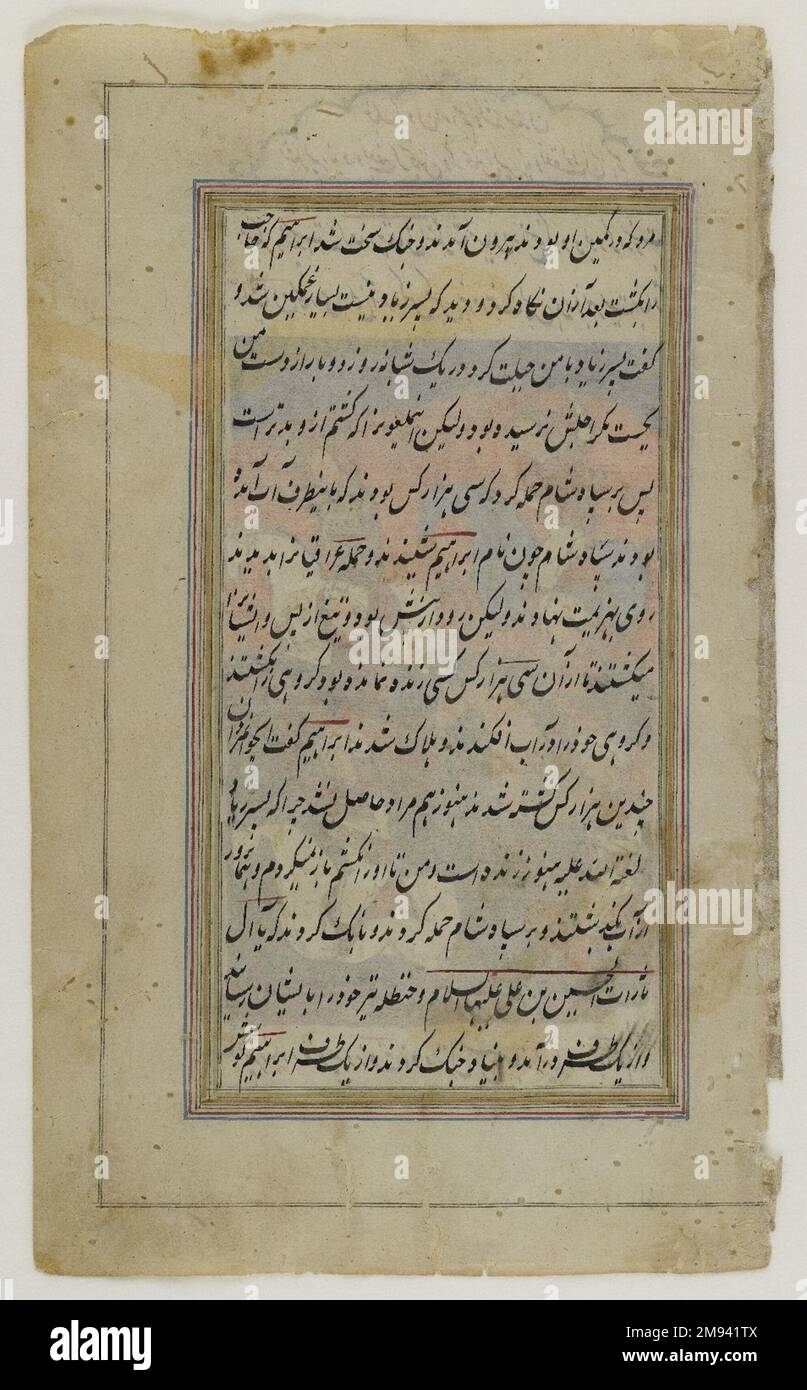 مرو که در کمین او بودند بیرون آمدند و جنک سخت شد ابراهیم که حاجب
را بکشت بعد از آن نکاه کرد و دید که پسر زیاد نیست بسیار غمکین شد و
کفت پسر زیاد با من حیلت کرد در یک شبانه روز دو بار از دست من
بجست مکر اجلش نرسیده بود ولیکن اینملعونرا که کشتم ازو بدتر است
پس بر سپاه شام حمله کرد که سی هزار کس بودند که باینطرف آب آمده
بودند سپاه شام چون نام ابراهیم شنیدند و حمله عراقیانرا بدیدند
روی بهزیمت نهادند ولیکن رود از پیش بود و تیغ از پس و ایشانرا
میکشتند تا از آن سی هزار کس کسی زنده نمانده بود کروهی را بکشتند
و کروهی خود را در آب افکندند و هلاک شدند ابراهیم کفت ایجوانمردان
چندین هزار کس کشته شدند هنوز هم مراد حاصل نشد چرا که پسر زیاد
لعنة الله علیه هنوز زنده است و من تا او را نکشم باز نمیکردم و
از آب بکذشتند و بر سپاه شام حمله کردند و بانک کردند که یا آل
ثارات الحسین بن علی علیهما السلام و حنظله نیز خود را بایشان رسانید
و از یک طرف در آمد و بنیاد جنک کردند و از یک طرف ابراهیم
alamy
Image ID: 2M941TX
www.alamy.com